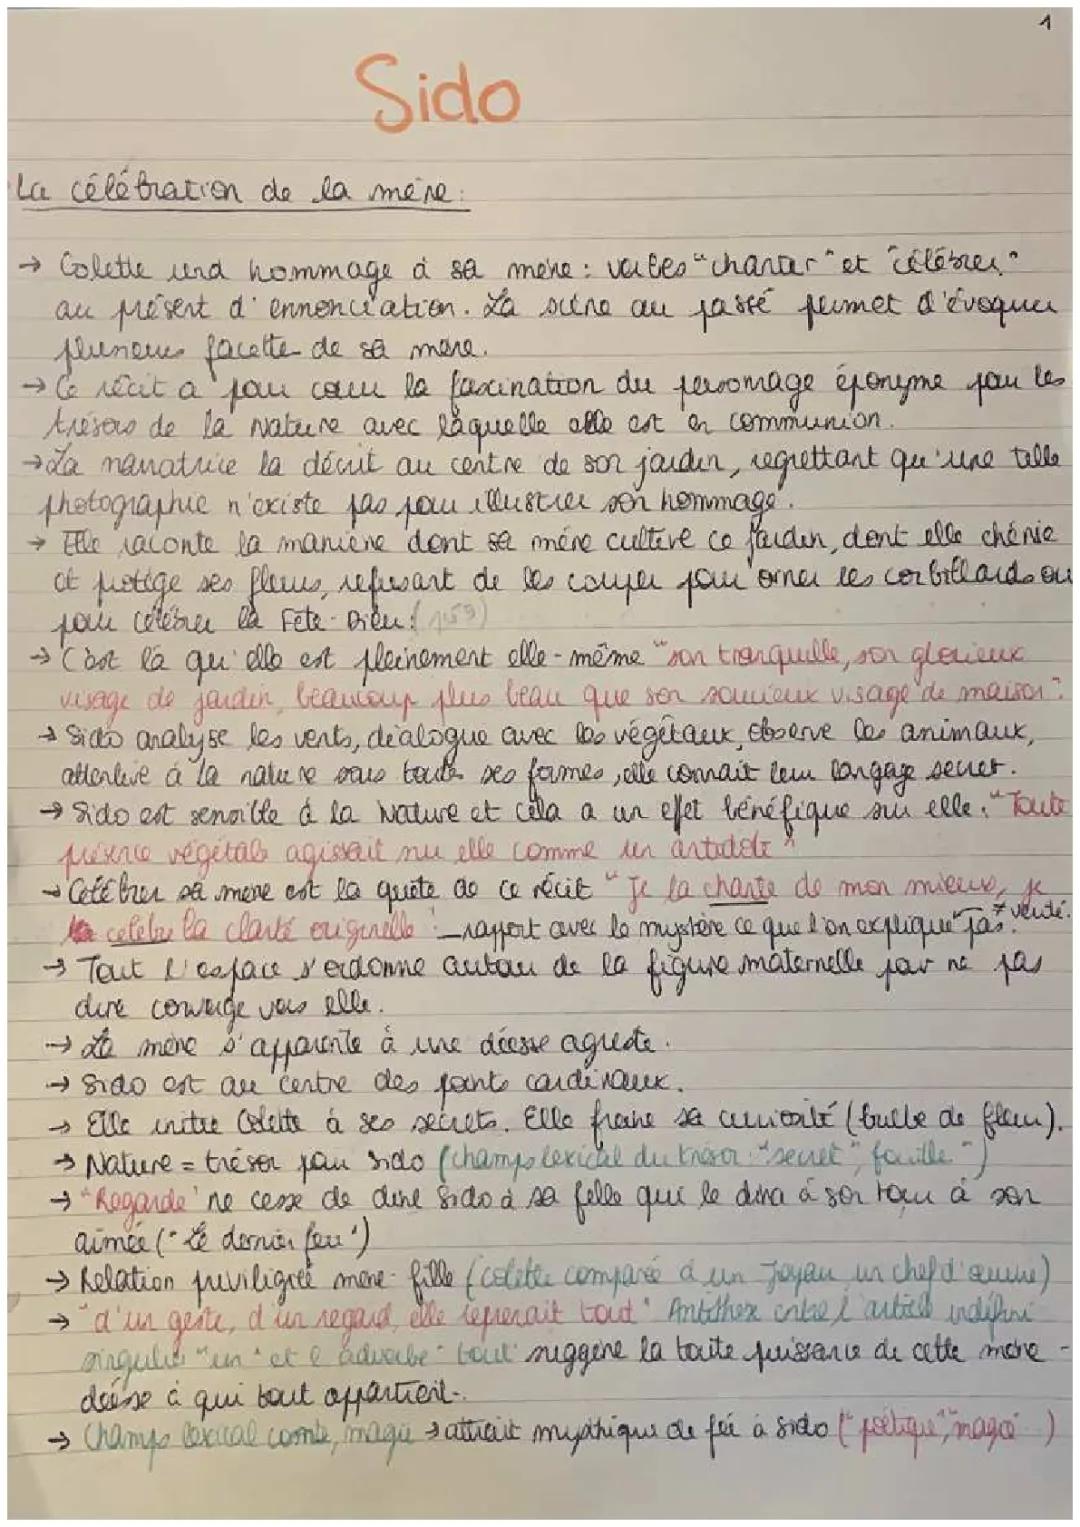 1
Sido
La célébration de la mère :
→ Colette rend hommage à sa mère : verbes "chanter" et "célébrer"
au présent d'ennonciation. La scène au passé permet d'évoquer
plusieurs facette de sa mère.
→ Ce récit a pour cœur la fascination du personnage éponyme pour les
trésors de la Nature avec laquelle elle est en communion.
→ La narratrice la décrit au centre de son jardin, regrettant qu'une telle
photographie n'existe pas pour illustrer son hommage.
→ Elle raconte la manière dont sa mère cultive ce jardin, dont elle chérie
et protège ses fleurs, refusant de les couper pour orner les corbillards ou
pour célébrer la Fête-Dieu.
→ C'est là qu'elle est pleinement elle-même "son tranquille, son glorieux
visage de jardin, beaucoup plus beau que son soucieux visage de maison".
→ Sido analyse les vents, dialogue avec les végétaux, observe les animaux,
attentive à la nature sous toutes ses formes, elle connait leur langage secret.
→ Sido est sensible à la Nature et cela a un effet bénéfique sur elle : "Toute
présence végétale agissait sur elle comme un antidote"
→ Célébrer sa mère est la quête de ce récit "Je la chante de mon mieux, je
célèbre la clarté originelle" rapport avec le mystère ce que l'on explique pas. ≠ vérité.
→ Tout l'espace s'ordonne autour de la figure maternelle pour ne pas
dire converge vers elle.
→ La mère s'apparente à une déesse agreste.
→ Sido est au centre des points cardinaux.
→ Elle initie Colette à ses secrets. Elle freine sa curiosité (bulbe de fleur).
→ Nature = trésor pour Sido (champs lexical du trésor : "secret", fouille")
→ "Regarde" ne cesse de dire Sido à sa fille qui le dira à son tour à son
aimée ("Le dernier feu")
→ Relation priviligiée mère-fille (Colette comparée à un Joyau un chef d'œuvre)
→ "d'un geste, d'un regard, elle reprenait tout" Antithèse entre l'article indéfini
singulier "un" et l'adverbe "tout" suggère la toute puissance de cette mère -
déesse à qui tout appartient.
→ Champs lexical conte, magie → attrait mythique de fée à Sido ("poétique", "magie")